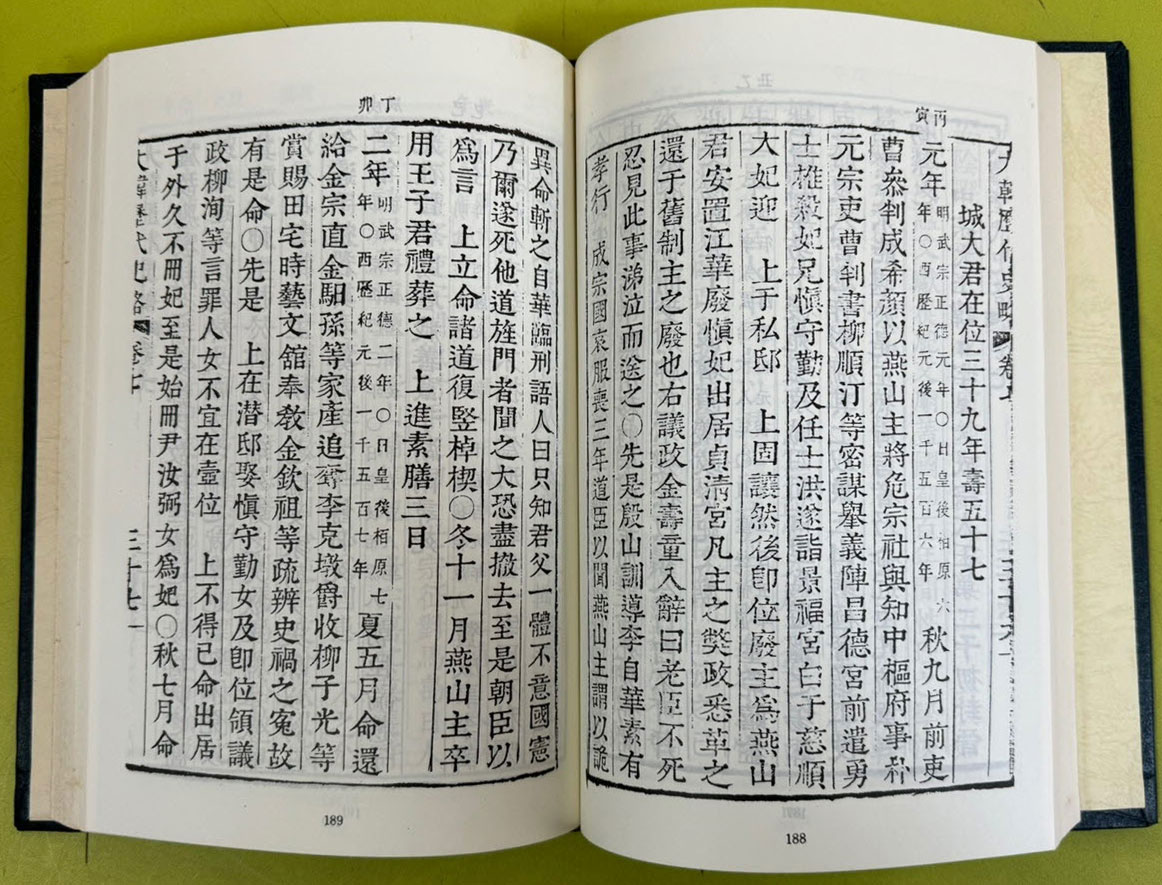 丙寅
大韓歷代史略 卷七 三十六
城大君在位三十九年壽五十七
元年明武宗正德元年○日皇後柏原六年○西歷紀元後一千五百六年 秋九月前吏
曹參判成希顏以燕山主將危宗社與知中樞府事朴
元宗吏曹判書柳順汀等密謀擧義陣昌德宮前遣勇
士椎殺妃兄愼守勤及任士洪遂詣景福宮白于慈順
大妃迎 上于私邸 上固讓然後卽位廢主爲燕山
君安置江華廢愼妃出居貞淸宮凡主之獘政悉革之
還于舊制主之廢也右議政金壽童入辭曰老臣不死
忍見此事涕泣而送之○先是殷山訓導李自華素有
孝行 成宗國哀服喪三年道臣以聞燕山主謂以詭
188
丁卯
異命斬之自華臨刑語人曰只知君父一體不意國憲
乃爾遂死他道旌門者聞之大恐盡撤去至是朝臣以
爲言 上立命諸道復竪棹楔○冬十一月燕山主卒
用王子君禮葬之 上進素膳三日
二年明武宗正德二年○日皇後柏原七年○西歷紀元後一千五百七年 夏五月命還
給金宗直金馹孫等家產追奪李克墩爵收柳子光等
賞賜田宅時藝文館奉敎金欽祖等疏辨史禍之寃故
有是命○先是 上在潛邸娶愼守勤女及卽位領議
政柳洵等言罪人女不宜在壼位 上不得已命出居
于外久不冊妃至是始冊尹汝弼女爲妃○秋七月命
大韓歷代史略 卷七 三十七
189